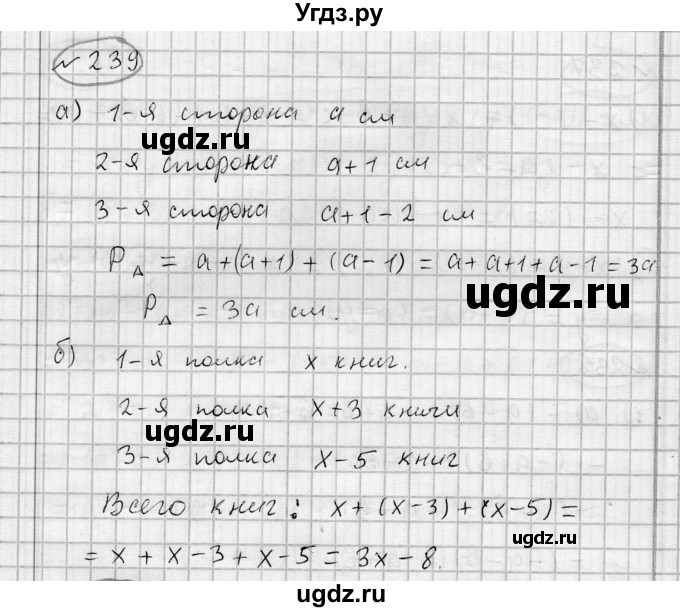 Угдз.ру
№ 239
а) 1-я сторона a см
ugdz.ru
2-я сторона a+1 см
3-я сторона a+1-2 см
P△ = a+(a+1)+(a-1) = a+a+1+a-1=3a
ugdz.ru
P△ = 3a см.
б) 1-я полка x книг.
2-я полка x+3 книги
ugdz.ru
3-я полка x-5 книг
Всего книг: x+(x-3)+(x-5)=
ugdz.ru
= x+x-3+x-5= 3x-8.
ugdz.ru